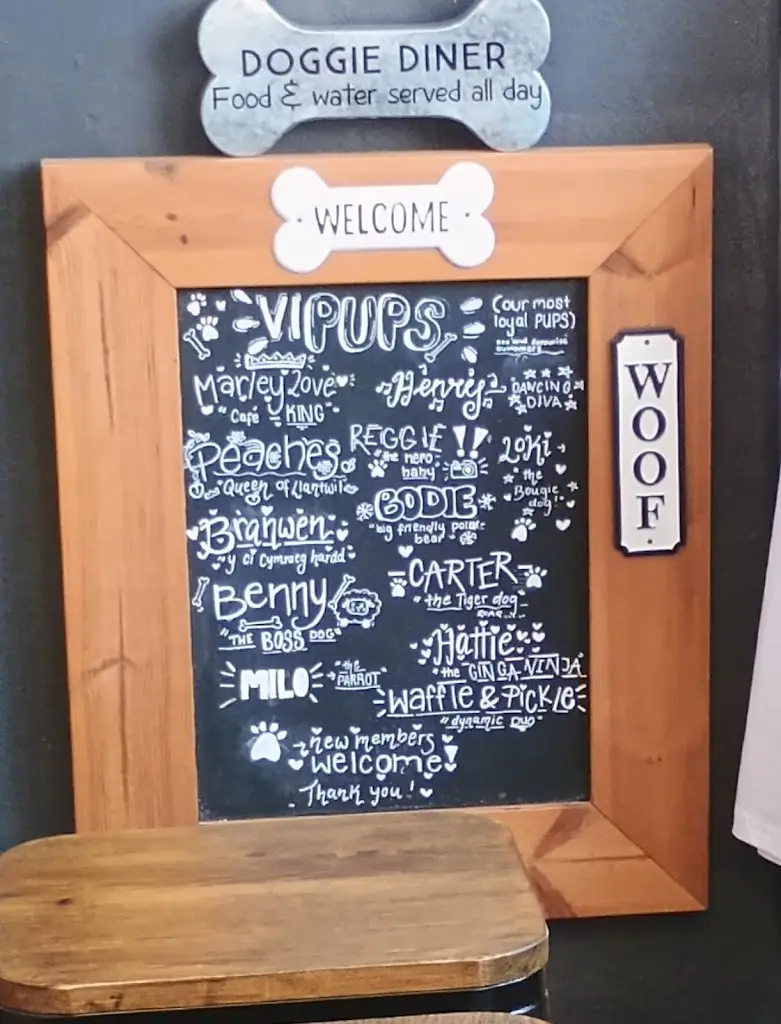 DOGGIE DINER
Food & water served all day
WELCOME
VIPUPS
(our most
loyal PUPS)
Marley Love
"Café KING"
Henry
DANCING
DIVA
Peaches
Queen of Llantwit
REGGIE !!
the hero
baby
Loki
"the
Bougie
dog"
BODIE
"big friendly polar
bear"
Branwen
"y ci Cymraeg hardd"
CARTER
"the Tiger dog"
Benny
"THE BOSS DOG"
Hattie
"the GINGA NINJA"
MILO
"the
PARROT"
Waffle & Pickle
"dynamic DUO"
new members
welcome!
Thank you!
WOOF